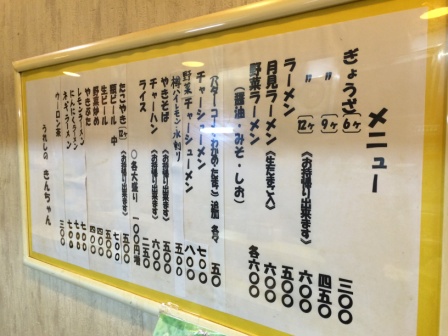 メニュー
ぎょうざ(6ヶ) 三〇〇
〃 (9ヶ) 四五〇
〃 (12ヶ)(お持帰り出来ます) 六〇〇
ラーメン 五〇〇
月見ラーメン(生たまご入) 六〇〇
野菜ラーメン(醤油・みそ・しお) 各六〇〇
(バターコーンわかめたまご)追加 各々 五〇
チャーシューメン 七〇〇
野菜チャーシューメン 八〇〇
樽ハイレモン・水割り 五〇〇
やきそば(お持帰り出来ます) 六〇〇
チャーハン(お持帰り出来ます) 六〇〇
ライス 二五〇
○各大盛り 一〇〇円増
たこやき(12ヶ)(お持帰り出来ます) 五〇〇
瓶ビール 中 七〇〇
生ビール 五〇〇
野菜炒め 四〇〇
やきぶた 四〇〇
レモンラーメン 七〇〇
にんにくラーメン 七〇〇
ネギラーメン 七〇〇
ウーロン茶 三〇〇
うれしの きんちゃん